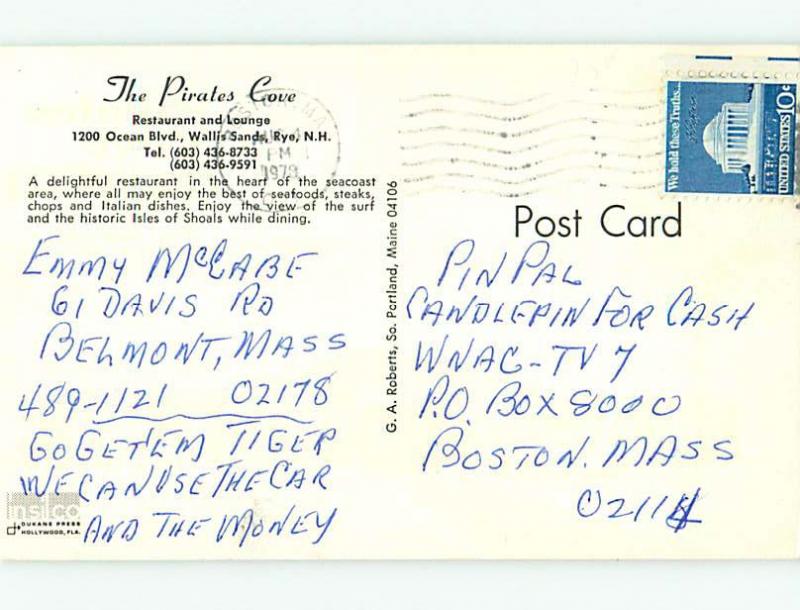 The Pirates Cove
Restaurant and Lounge
1200 Ocean Blvd., Wallis Sands, Rye, N.H.
Tel. (603) 436-8733
(603) 436-9591
A delightful restaurant in the heart of the seacoast
area, where all may enjoy the best of seafoods, steaks,
chops and Italian dishes. Enjoy the view of the surf
and the historic Isles of Shoals while dining.
EMMY McCABE
61 DAVIS RD
BELMONT, MASS
489-1121 02178
GO GET'EM TIGER
WE CAN USE THE CAR
AND THE MONEY
DUKANE PRESS
HOLLYWOOD, FLA.
G. A. Roberts, So. Portland, Maine 04106
PM
We hold these Truths...
UNITED STATES 10c
Post Card
PIN PAL
CANDLEPIN FOR CASH
WNAC-TV 7
P.O. BOX 8000
BOSTON. MASS
02114